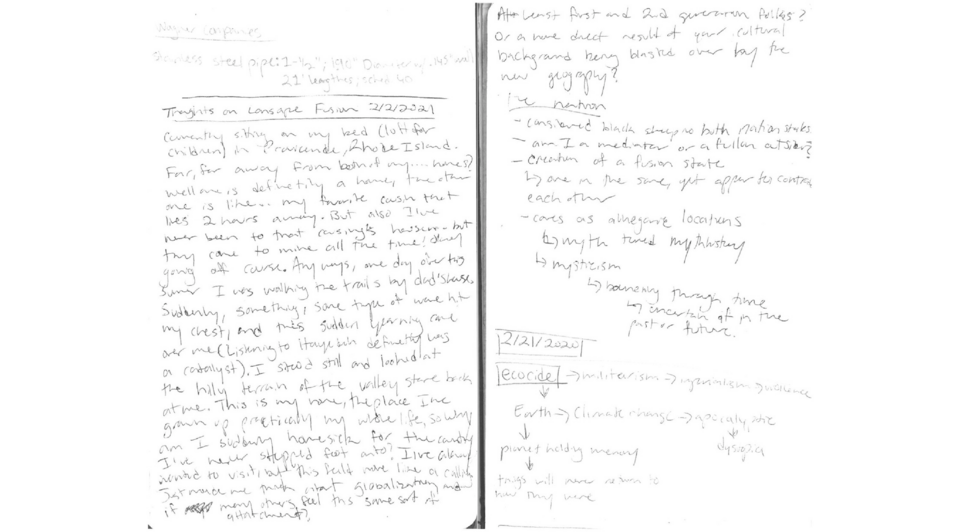 Wagner Companies
Stainless steel pipe: 1-1/2", 1.90" Diameter, .145" wall
21' lengthes, sched 40
Thoughts on Lansacpe Fusion 2/2/2021
Currently sitting on my bed (loft for
children) in Providence, Rhode Island.
Far, far away from both of my.... homes?
well one is definetily a home, the other
one is like... my favorite cousin that
lies 2 hours away. But also I've
never been to that cousing's house -- but
they come to mine all the time! Okay
going off course. Anyways, one day over the
Sumer I was walking the trails by dad's house.
Suddenly, something, some type of wave hit
my chest, and this sudden yearning came
over me (Listening to definetly was
a catalyst). I stood still and looked at
the hilly terrain of the valley stare back
at me. This is my home, the place I've
grown up practically my whole life, so why
am I suddenly homesick for the country
I've never stepped foot into? I've always
wanted to visit, but this felt more like a calling
Just made me think about globalization and
if many others feel this same sort of
attachment?
At least first and 2nd generation folks?
Or a more direct result of your cultural
background being blasted over by the
new geography?
- considered black sheep to both nation states
- am I a mediator or a fallen outsider?
- creation of a fusion state
↳ one in the same, yet appear to contra
each other
- caves as allegoric locations
↳ myth tured mythistory
↳ mysticism
↳ bouncing through time
↳ uncertain of in the
past or future.
2/21/2020
ecocide → militarism → → violence
Earth → Climate change → apocalyptic
planet holding memory
things will never return to
how they were